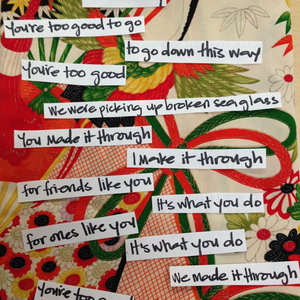 You're too good to go
to go down this way
You're too good
We were picking up broken sea glass
You made it through
I make it through
for friends like you
It's what you do
for ones like you
It's what you do
We made it through
You're too